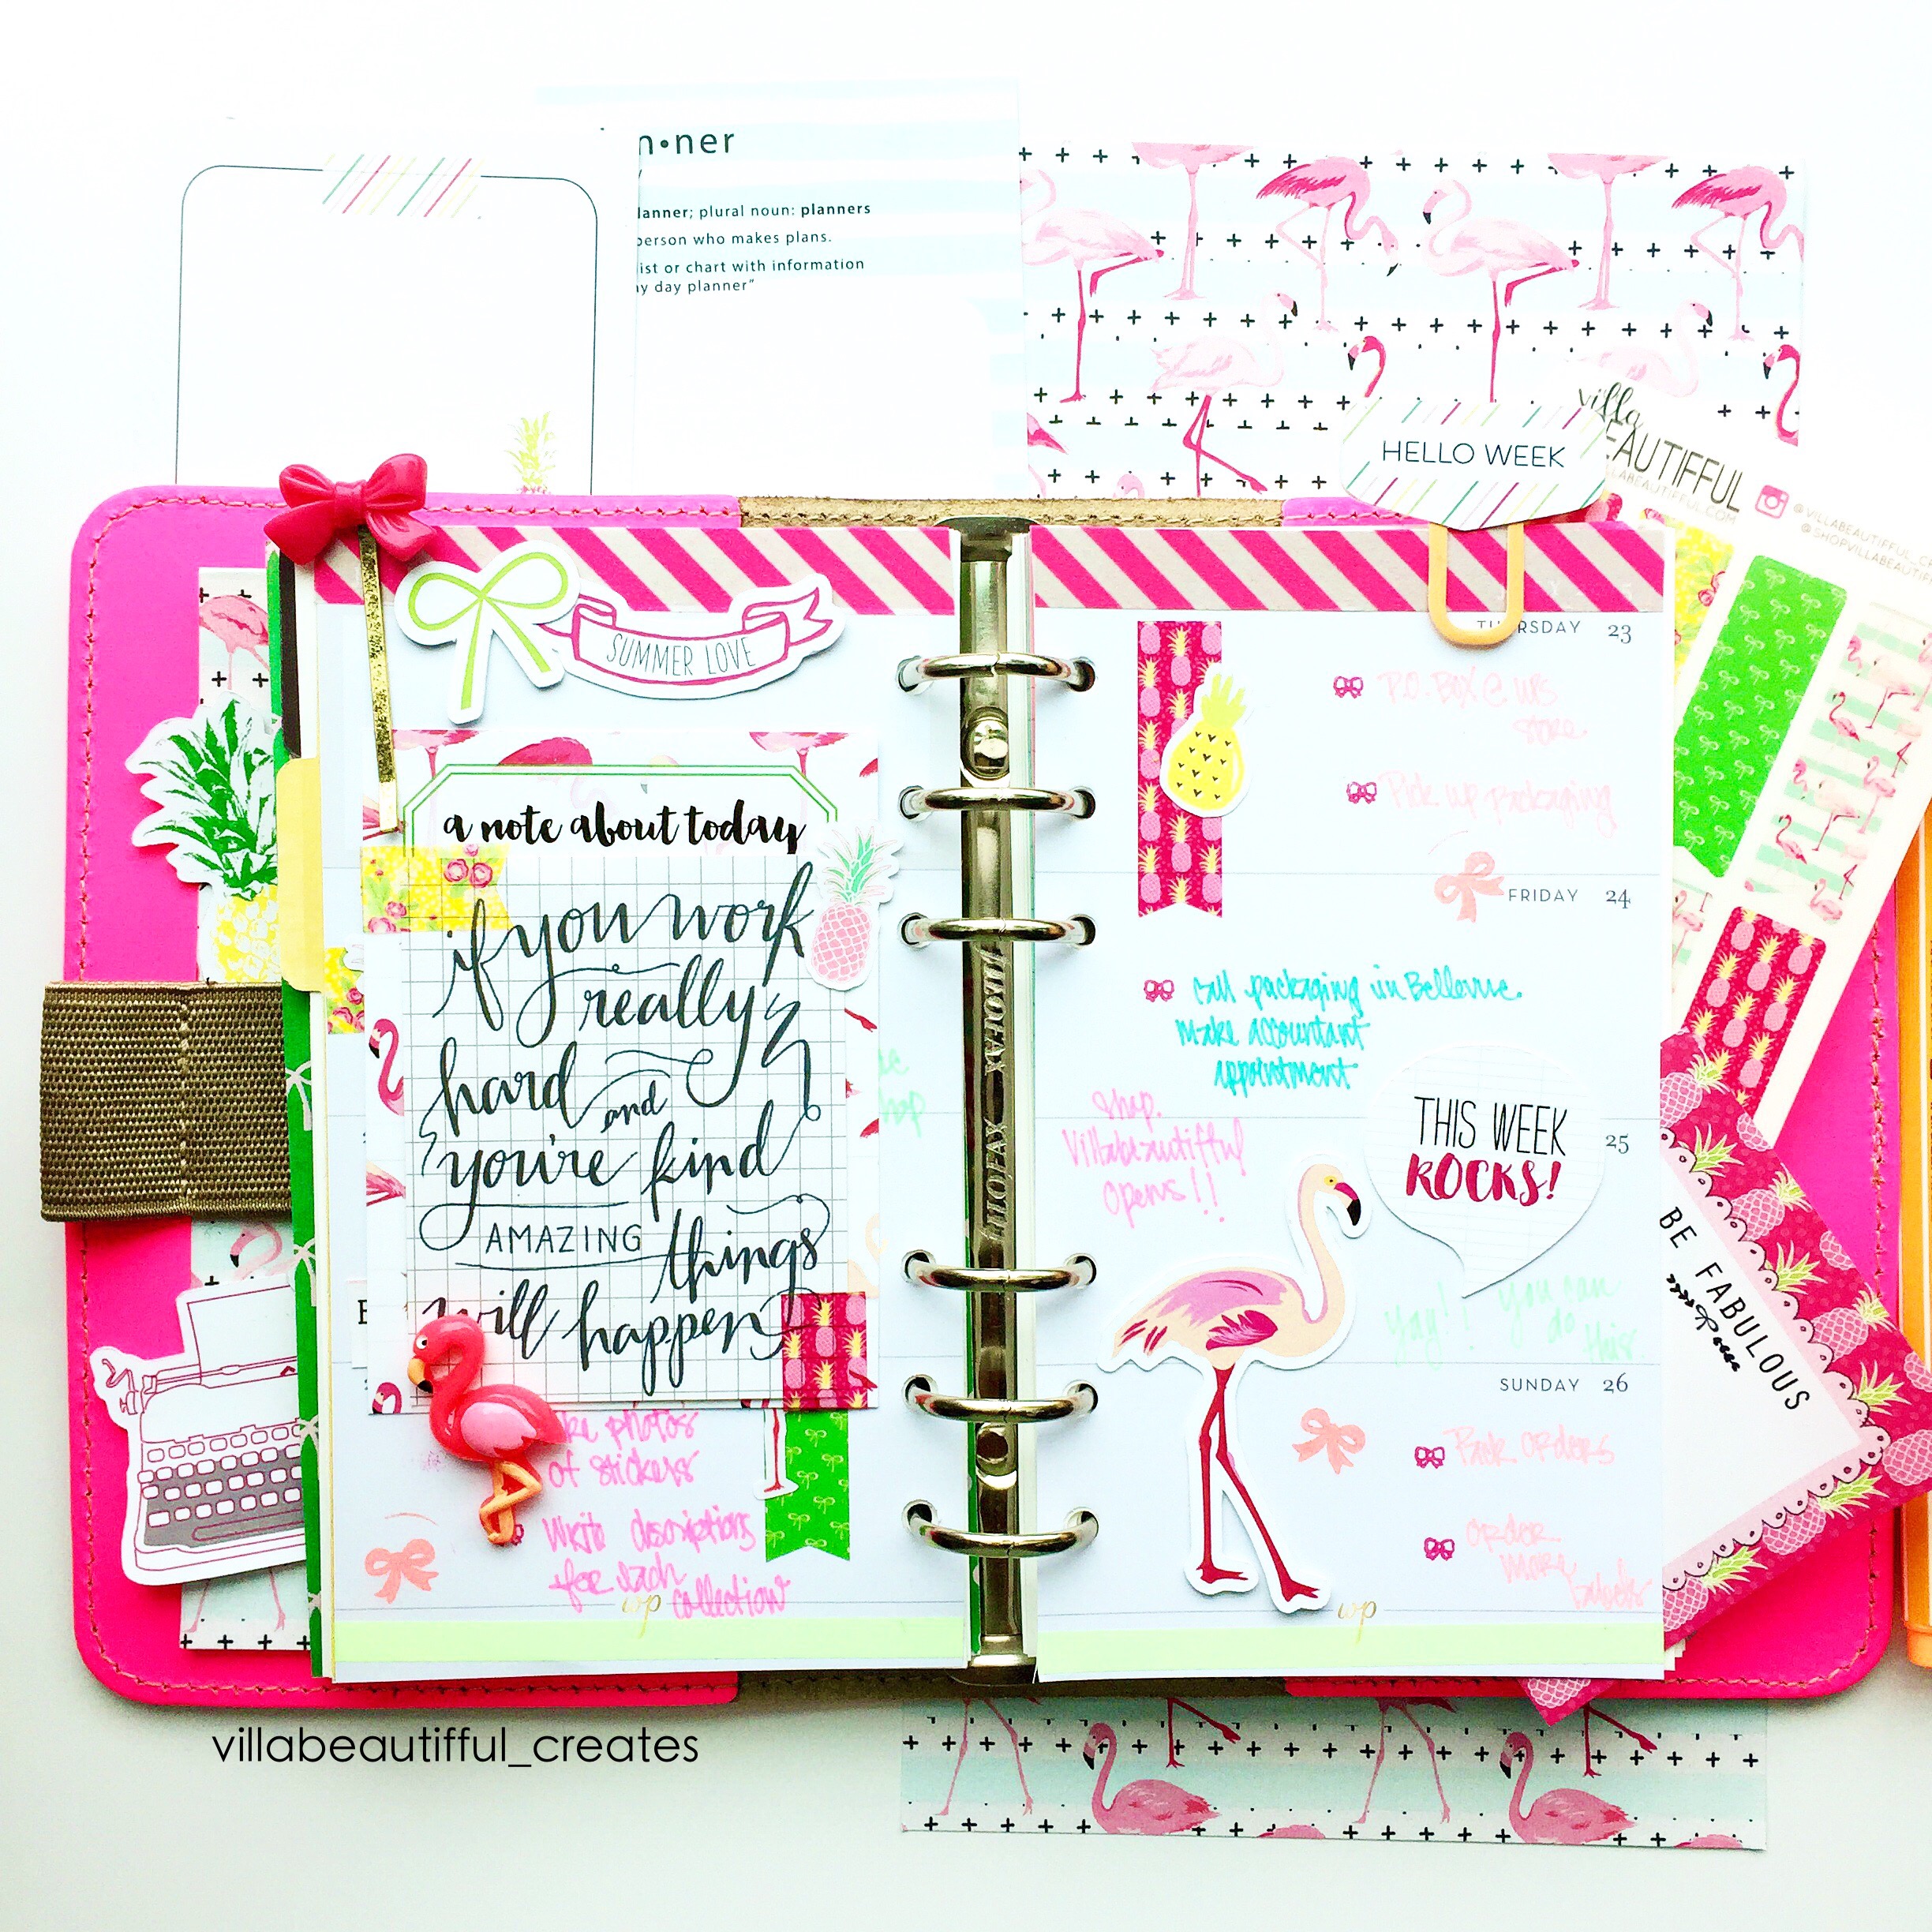 n•ner
lanner; plural noun: planners
person who makes plans.
list or chart with information
ay day planner”
HELLO WEEK
villa
BEAUTIFFUL
SUMMER LOVE
a note about today
if you work
really
hard and
you're kind
AMAZING things
will happen
ke photos
of stickers
Write descriptions
for each
collection
wp
FILOFAX
FILOFAX
THURSDAY 23
P.O. BOX @ UPS
store
Pick up packaging
FRIDAY 24
call packaging in Bellevue.
Make accountant
appointment
25
Shop.
Villabeautifful
opens!!
THIS WEEK
ROCKS!
yay!! you can
do
this.
SUNDAY 26
Pack orders
order
more
wp
BE FABULOUS
villabeautifful_creates